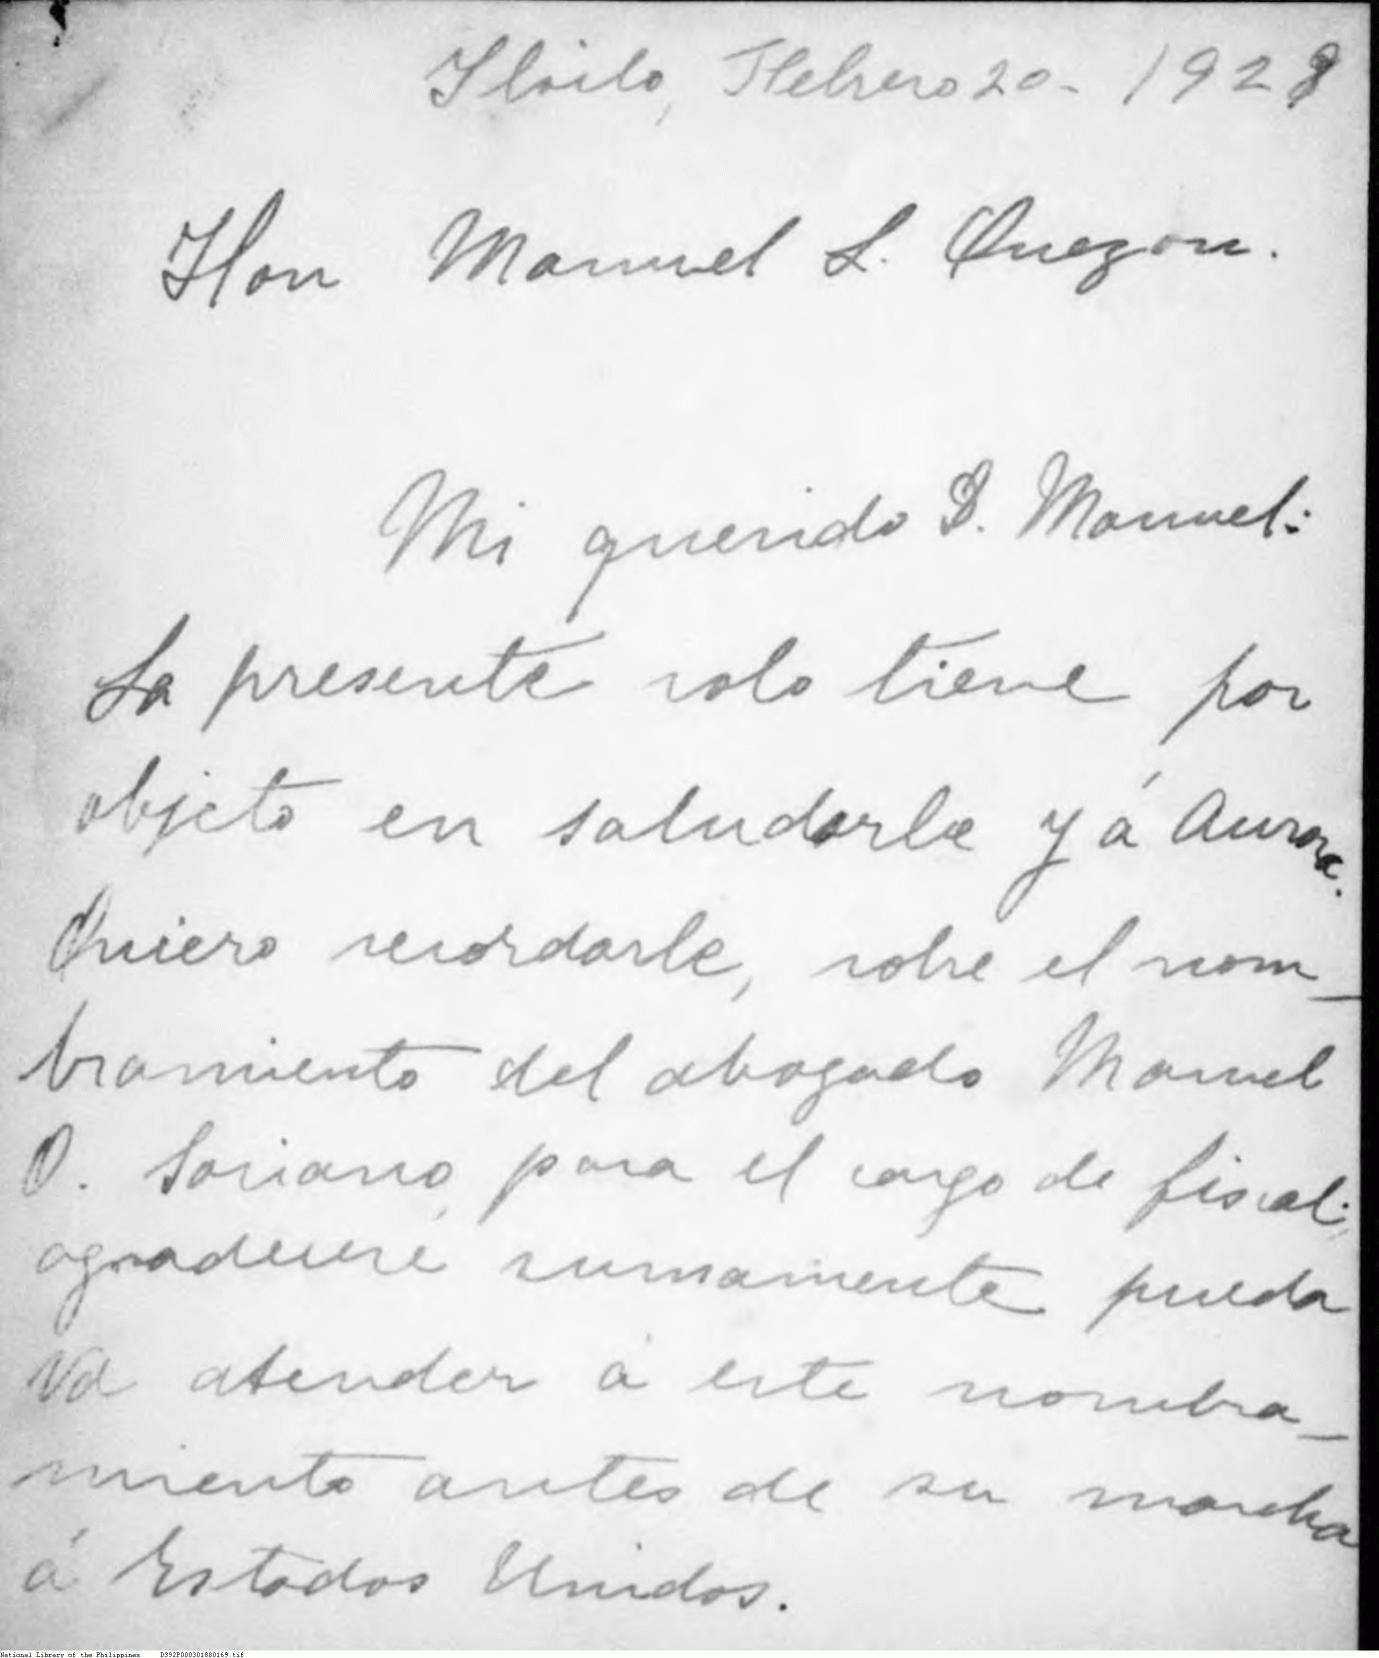 Iloilo, Febrero 20 - 1928
Hon Manuel L. Quezon.
Mi querido D. Manuel:
La presente solo tiene por
objeto en saludarle y á Aurora.
Quiero recordarle, sobre el nom-
bramiento del abogado Manuel
O. Soriano para el cargo de fiscal;
agradeceré sumamente pueda
Vd atender á este nombra-
miento antes de su marcha
á Estados Unidos.
National Library of the Philippines D392P000301880169.tif